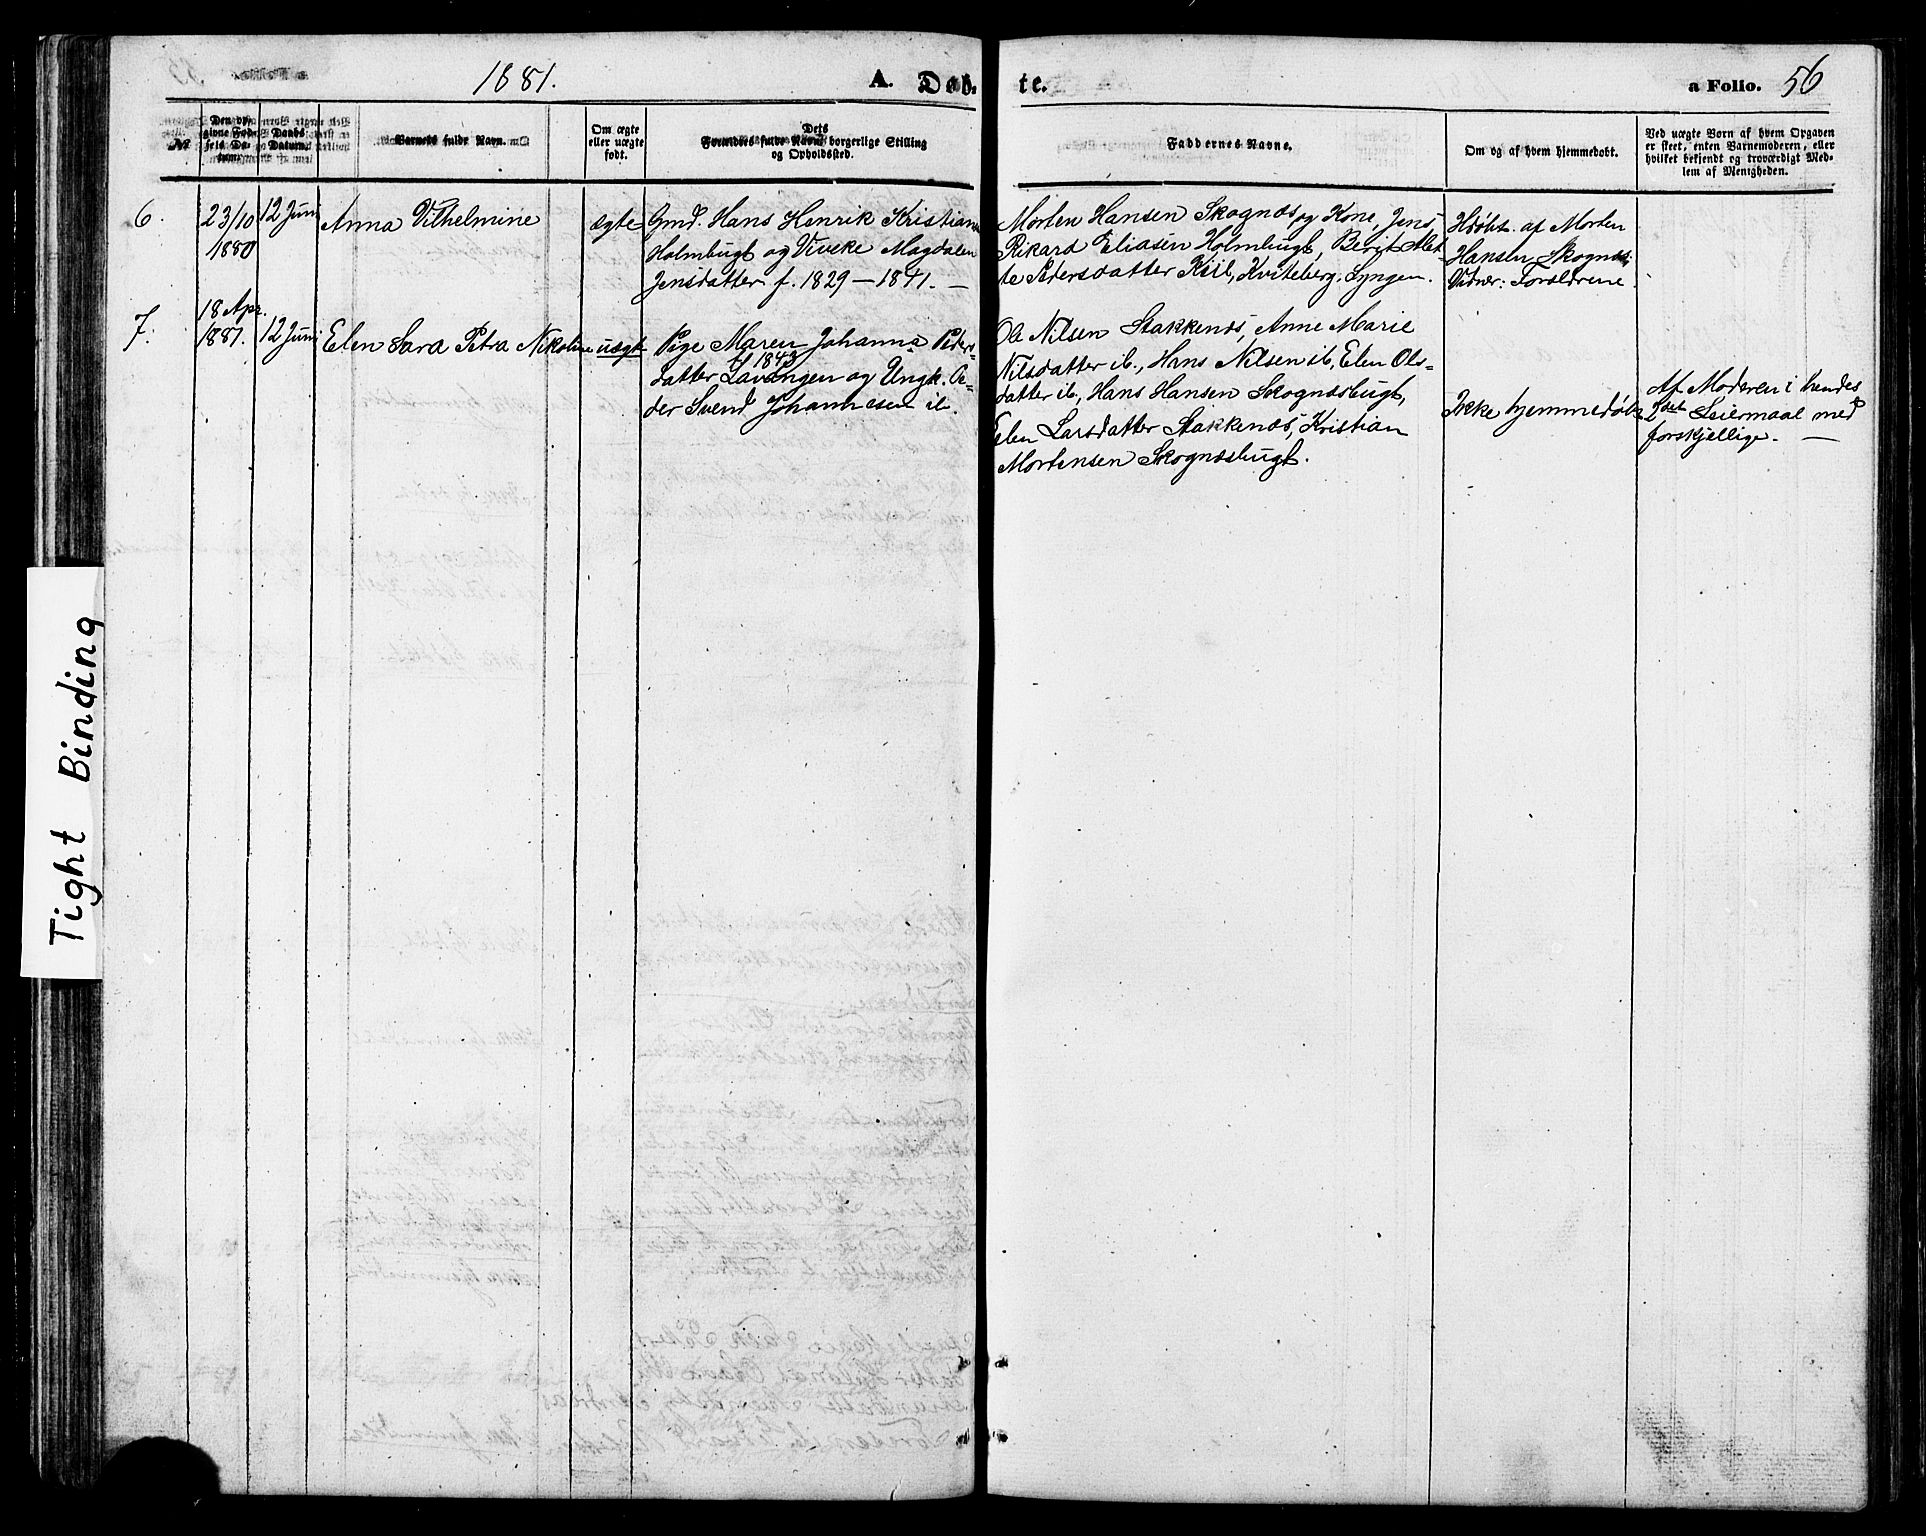 1881.
A. Døb-
te.
a Folio. 56
№
Den op-
givne Fød-
sels Da-
tum.
Daabs
Datum.
Barnets fulde Navn.
Om ægte
eller uægte
født.
Dets
Forældres fulde Navn, borgerlige Stilling
og Opholdssted.
Faddernes Navne.
Om og af hvem hjemmedøbt.
Ved uægte Børn af hvem Opgaven
er skeet, enten Barnemoderen, eller
hvilket bekjendt og troværdigt Med-
lem af Menigheden.
6.
23/10
1880
12 Juni
Anna Vilhelmine
ægte
Gmd. Hans Henrik Kristians
Holmbugt og Viveke Magdalen
Jensdatter f. 1829 — 1841. —
Morten Hansen Skognæs og Kone, Jens
Rikard Eliasen Holmbugt, Berit Alet-
te Pedersdatter Kiil, Kviteberg, Lyngen.
Hdøbt af Morten
Hansen Skognæs
Vidner: Forældrene.
7.
18 Apr.
1881.
12 Juni
Elen Sara Petra Nikoline
uægte
Pige Maren Johanna Peders-
f. 1843
datter Lavangen og Ungk. Pe-
der Svend Johannesen ib.
Ole Nilsen Stakkenæs, Anne Marie
Nilsdatter ib., Hans Nilsen ib, Elen Ols-
datter ib, Hans Hansen Skognæsbugt,
Elen Larsdatter Stakkenæs, Kristian
Mortensen Skognæsbugt.
Ikke hjemmedøbt
Af Moderen i hendes
2det Leiermaal med
forskjellige. —
Tight Binding